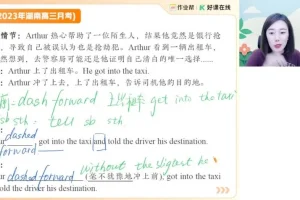 2023年湖南高三月考)
作业帮 好课在线
情节：Arthur 热心帮助了一位陌生人，结果他竟然是银行抢
导致自己被误认为也是抢劫犯。Arthur 看到一辆出租车，
然想到，去警察局可能还是他证明自己清白的唯一选择……
：Arthur 上了出租车。He got into the taxi.
：Arthur 冲了上去，上了出租车，告诉司机他的目的地。
= dash forward 上出租车 got into the taxi
sth = tell sb sth
dashed
forward, got into the taxi and told the driver his destination.
：
dashed forward without the slightest he
(毫不犹豫地冲上前), got into the taxi
told the driver his destination.